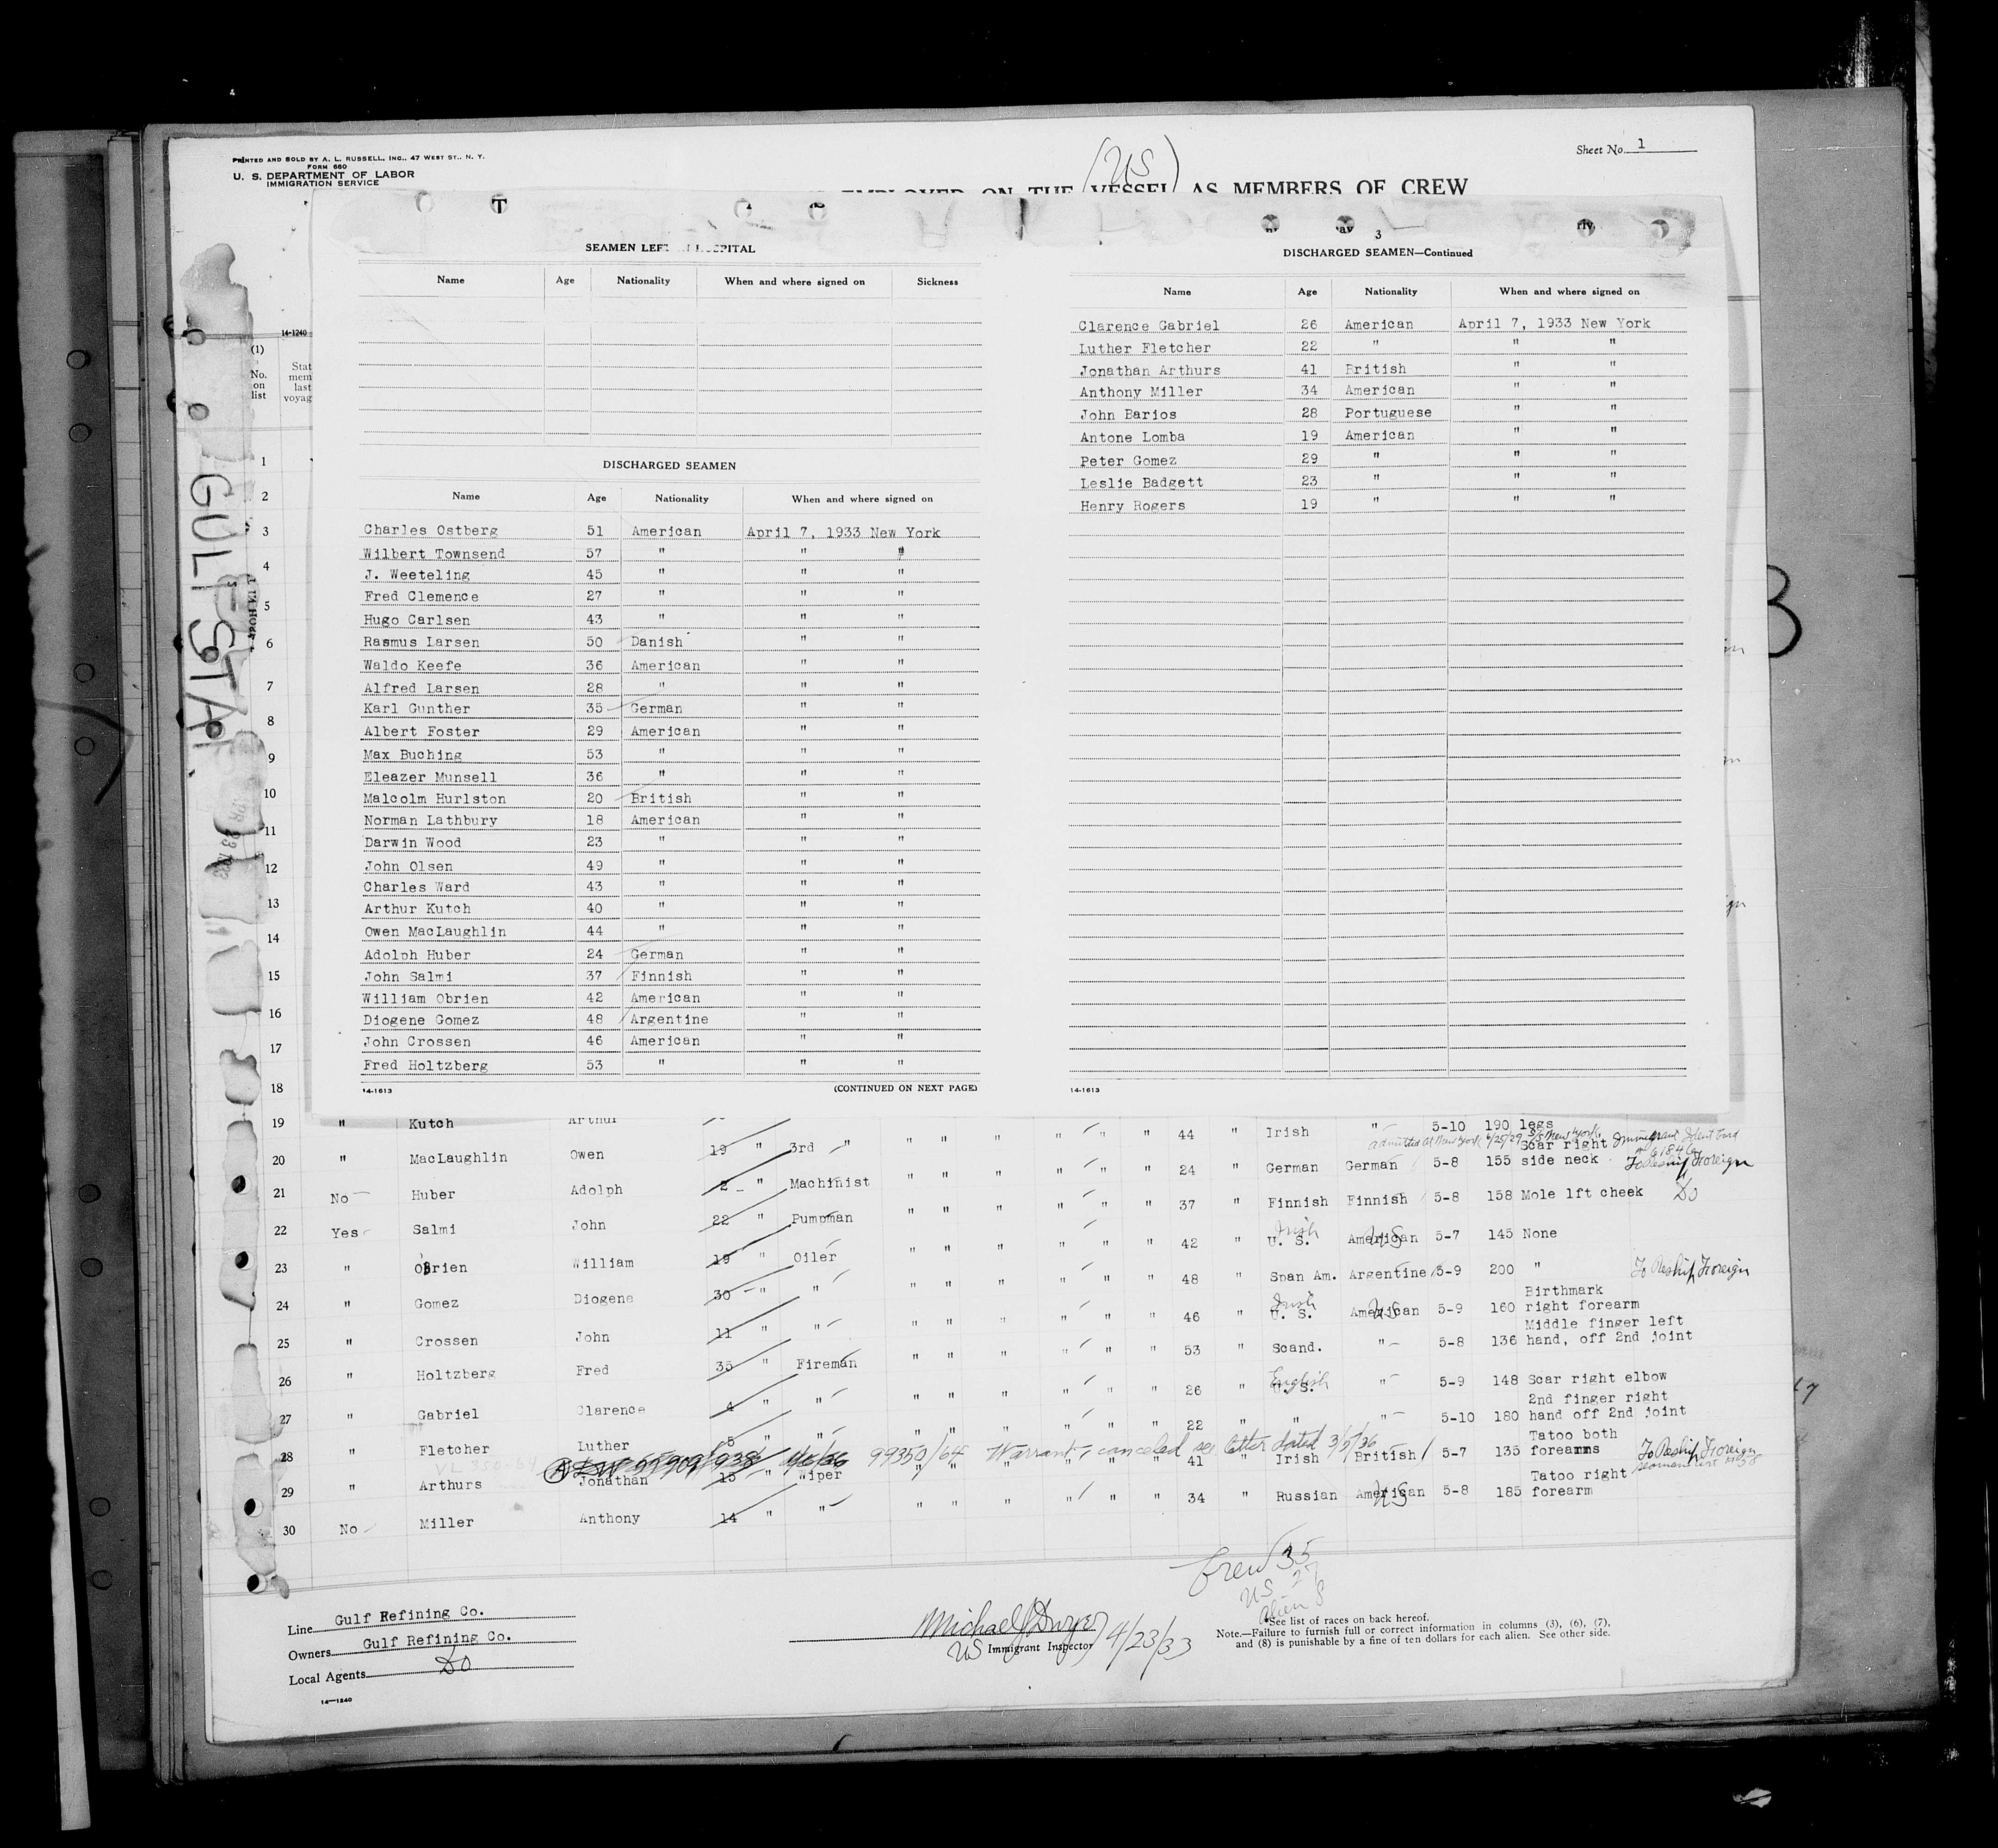 PRINTED AND SOLD BY A. L. RUSSELL, INC., 47 WEST ST., N. Y.
FORM 680
U. S. DEPARTMENT OF LABOR
IMMIGRATION SERVICE
Sheet No. 1
(US)
EMPLOYED ON THE VESSEL AS MEMBERS OF CREW
GULFSTAR
14-1240
(1)
No. on list
SEAMEN LEFT HOSPITAL
Name Age Nationality When and where signed on Sickness
DISCHARGED SEAMEN
Name Age Nationality When and where signed on
Charles Ostberg 51 American April 7, 1933 New York
Wilbert Townsend 57 " " "
J. Weeteling 45 " " "
Fred Clemence 27 " " "
Hugo Carlsen 43 " " "
Rasmus Larsen 50 Danish " "
Waldo Keefe 36 American " "
Alfred Larsen 28 " " "
Karl Gunther 35 German " "
Albert Foster 29 American " "
Max Buching 53 " " "
Eleazer Munsell 36 " " "
Malcolm Hurlston 20 British " "
Norman Lathbury 18 American " "
Darwin Wood 23 " " "
John Olsen 49 " " "
Charles Ward 43 " " "
Arthur Kutch 40 " " "
Owen MacLaughlin 44 " " "
Adolph Huber 24 German " "
John Salmi 37 Finnish " "
William Obrien 42 American " "
Diogene Gomez 48 Argentine " "
John Crossen 46 American " "
Fred Holtzberg 53 " " "
14-1613 (CONTINUED ON NEXT PAGE)
3
DISCHARGED SEAMEN—Continued
Name Age Nationality When and where signed on
Clarence Gabriel 26 American April 7, 1933 New York
Luther Fletcher 22 " " "
Jonathan Arthurs 41 British " "
Anthony Miller 34 American " "
John Barios 28 Portuguese " "
Antone Lomba 19 American " "
Peter Gomez 29 " " "
Leslie Badgett 23 " " "
Henry Rogers 19 " " "
14-1613
1
2
3
4
5
6
7
8
9
10
11
12
13
14
15
16
17
18
19 " Kutch Arthur
20 " MacLaughlin Owen 19 " 3rd " " " " " " " 44 " Irish " 5-10 190 legs
21 No Huber Adolph 2 " Machinist " " " " " " 24 " German German 5-8 155 Scar right side neck To Reship Foreign
22 Yes Salmi John 22 " Pumpman " " " " " " 37 " Finnish Finnish 5-8 158 Mole lft cheek Do
23 " OBrien William 19 " Oiler " " " " " " 42 " U. S. Irish American US 5-7 145 None
24 " Gomez Diogene 30 " " " " " " " " 48 " Span Am. Argentine 5-9 200 " To Reship Foreign
25 " Crossen John 11 " " " " " " " " 46 " U. S. Irish American US 5-9 160 Birthmark right forearm
26 " Holtzberg Fred 35 " Fireman " " " " " " 53 " Scand. " 5-8 136 Middle finger left hand, off 2nd joint
27 " Gabriel Clarence 4 " " " " " " " " 26 " U.S. English " 5-9 148 Scar right elbow
28 " Fletcher Luther 5 " " " " " " " " 22 " " " 5-10 180 2nd finger right hand off 2nd joint
99350/64 Warrant canceled see letter dated 3/5/36
29 " Arthurs Jonathan 15 " Wiper " " " " " " 41 " Irish British 5-7 135 Tatoo both forearms To Reship Foreign
30 No Miller Anthony 14 " " " " " " " " 34 " Russian American US 5-8 185 Tatoo right forearm
Crew 35
US 27
Alien 8
Line Gulf Refining Co.
Owners Gulf Refining Co.
Local Agents Do
14—1240
Michael J Dwyer 4/23/33
US Immigrant Inspector
*See list of races on back hereof.
Note.—Failure to furnish full or correct information in columns (3), (6), (7),
and (8) is punishable by a fine of ten dollars for each alien. See other side.